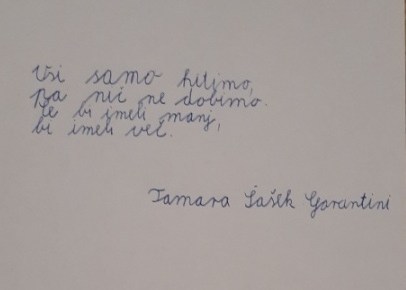 Vsi samo hitimo,
pa nič ne dobimo.
Če bi imeli manj,
bi imeli več.
Tamara Šašek Gorantini